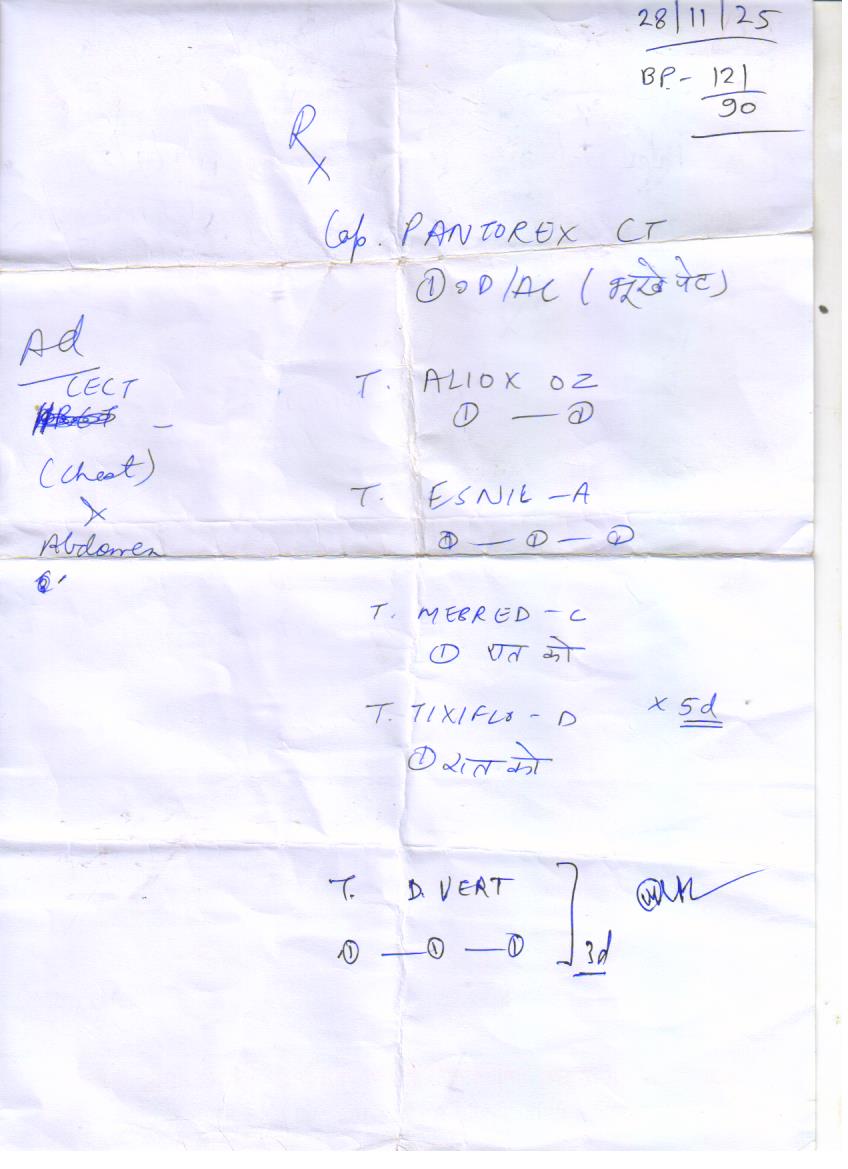 28/11/25
BP.- 121
90
Rx
Cap. PANTOREX CT
① OD/AC (भूखे पेट)
Ad
CECT
(Chest)
Abdomen
T. ALIOX OZ
① — ①
T. ESNIL-A
① — ① — ①
T. MEBRED-C
① रात को
T. TIXIFLO-D × 5d
① रात को
T. D.VERT
① — ① — ① 3d